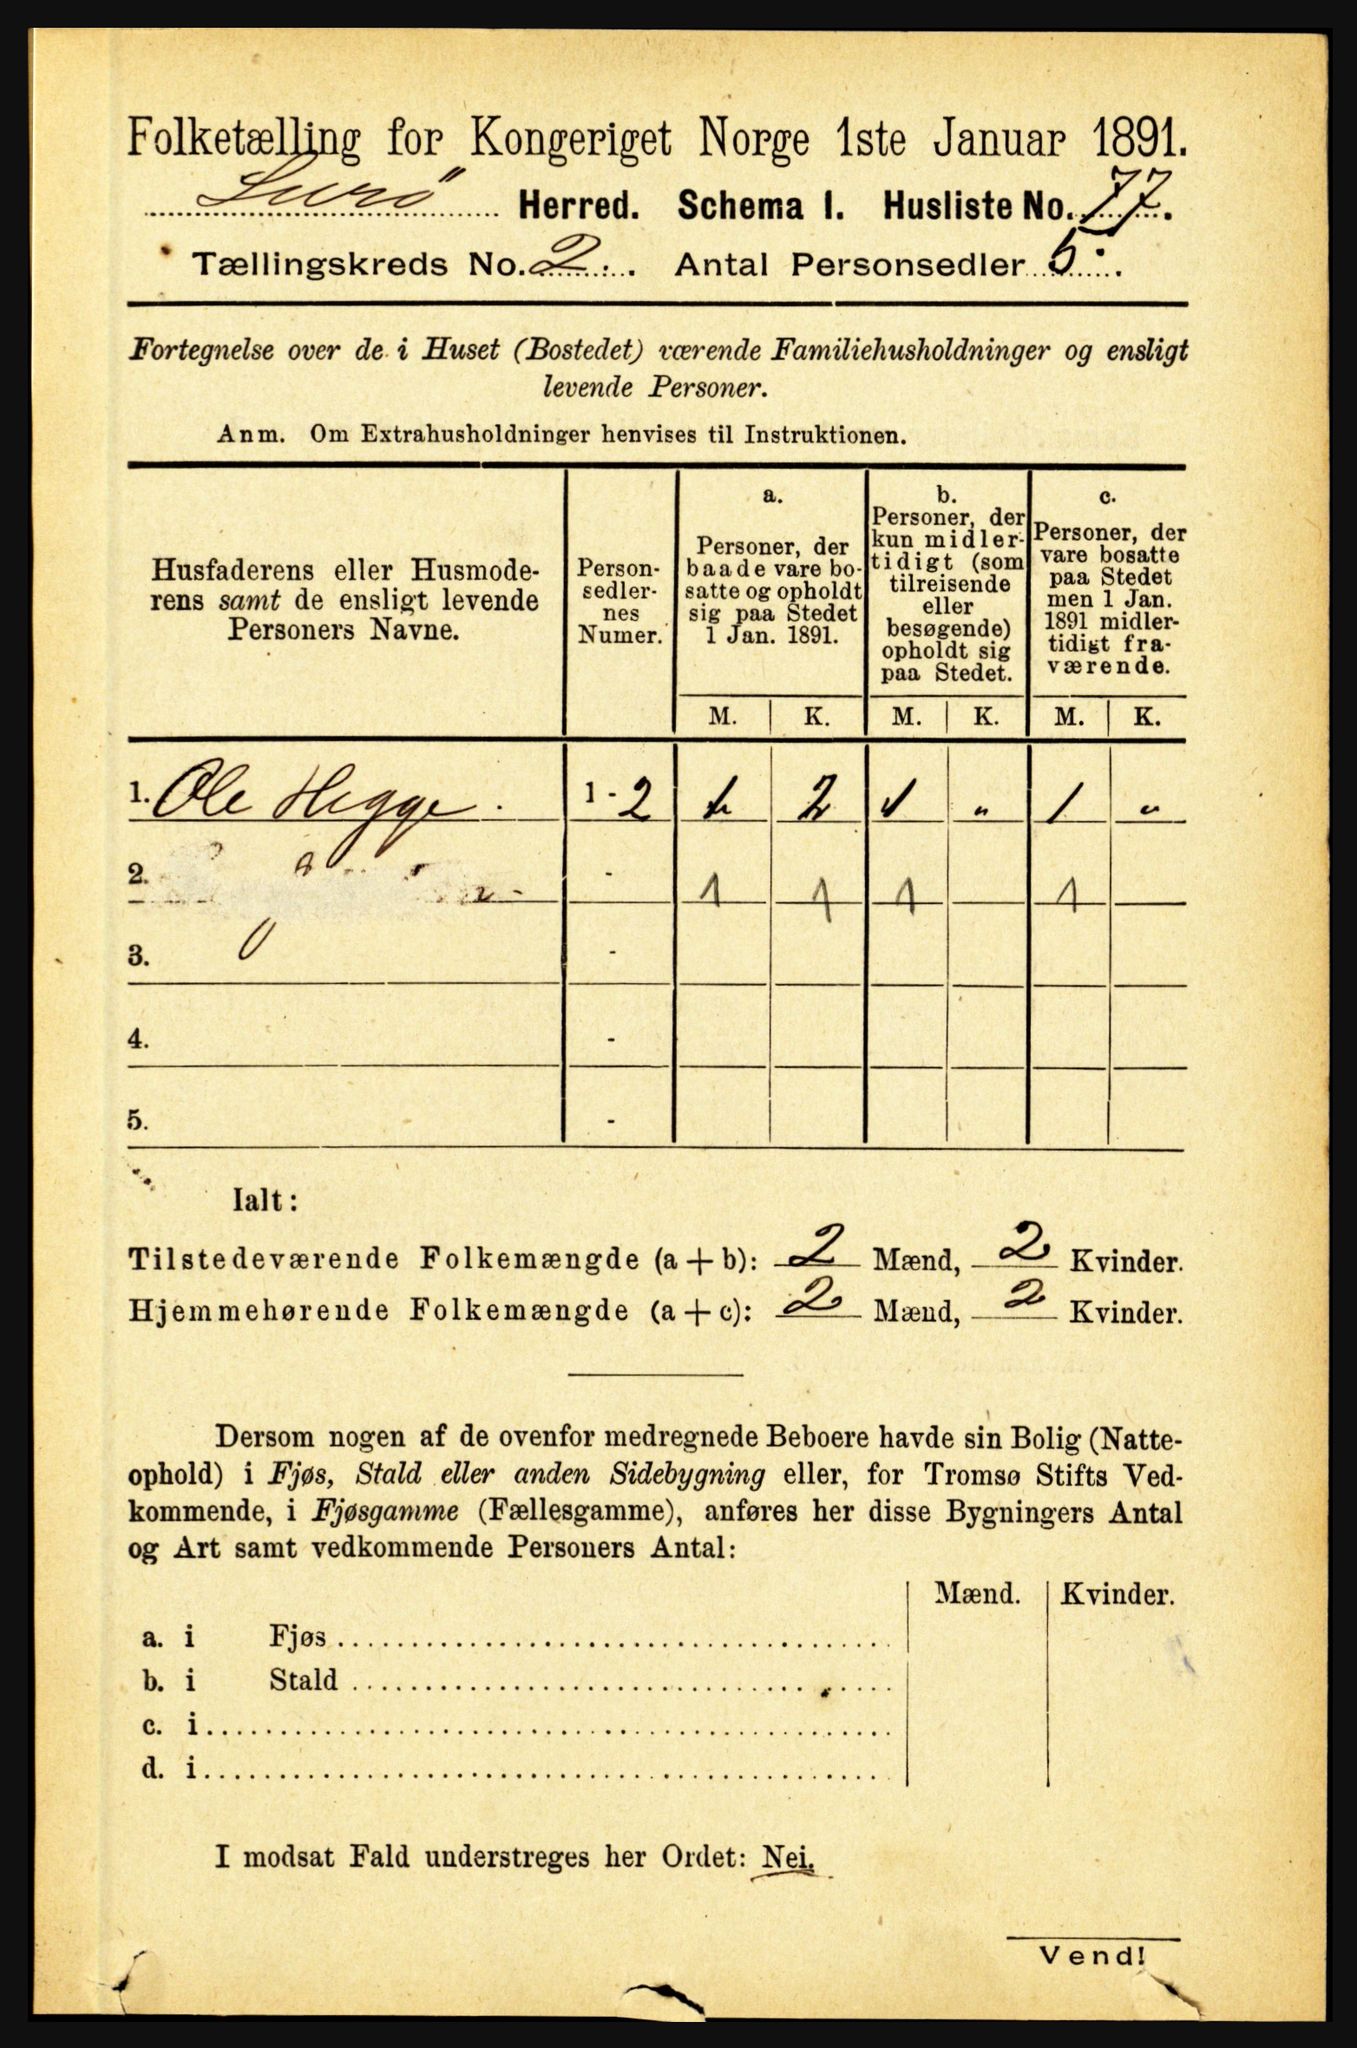 Folketælling for Kongeriget Norge 1ste Januar 1891.
Lurö Herred. Schema I. Husliste No. 77.
Tællingskreds No. 2. Antal Personsedler 5.
Fortegnelse over de i Huset (Bostedet) værende Familiehusholdninger og ensligt
levende Personer.
Anm. Om Extrahusholdninger henvises til Instruktionen.
Husfaderens eller Husmode-
rens samt de ensligt levende
Personers Navne.
Person-
sedler-
nes
Numer.
a.
Personer, der
baade vare bo-
satte og opholdt
sig paa Stedet
1 Jan. 1891.
b.
Personer, der
kun midler-
tidigt (som
tilreisende
eller
besøgende)
opholdt sig
paa Stedet.
c.
Personer, der
vare bosatte
paa Stedet
men 1 Jan.
1891 midler-
tidigt fra-
værende.
M. K. M. K. M. K.
1. Ole Hegge. 1 - 2 1 2 1 " 1 "
2. - 1 1 1 1
3. -
4. -
5. -
Ialt:
Tilstedeværende Folkemængde (a + b): 2 Mænd, 2 Kvinder.
Hjemmehørende Folkemængde (a + c): 2 Mænd, 2 Kvinder.
Dersom nogen af de ovenfor medregnede Beboere havde sin Bolig (Natte-
ophold) i Fjøs, Stald eller anden Sidebygning eller, for Tromsø Stifts Ved-
kommende, i Fjøsgamme (Fællesgamme), anføres her disse Bygningers Antal
og Art samt vedkommende Personers Antal:
Mænd. Kvinder.
a. i Fjøs
b. i Stald
c. i
d. i
I modsat Fald understreges her Ordet: Nei.
Vend!